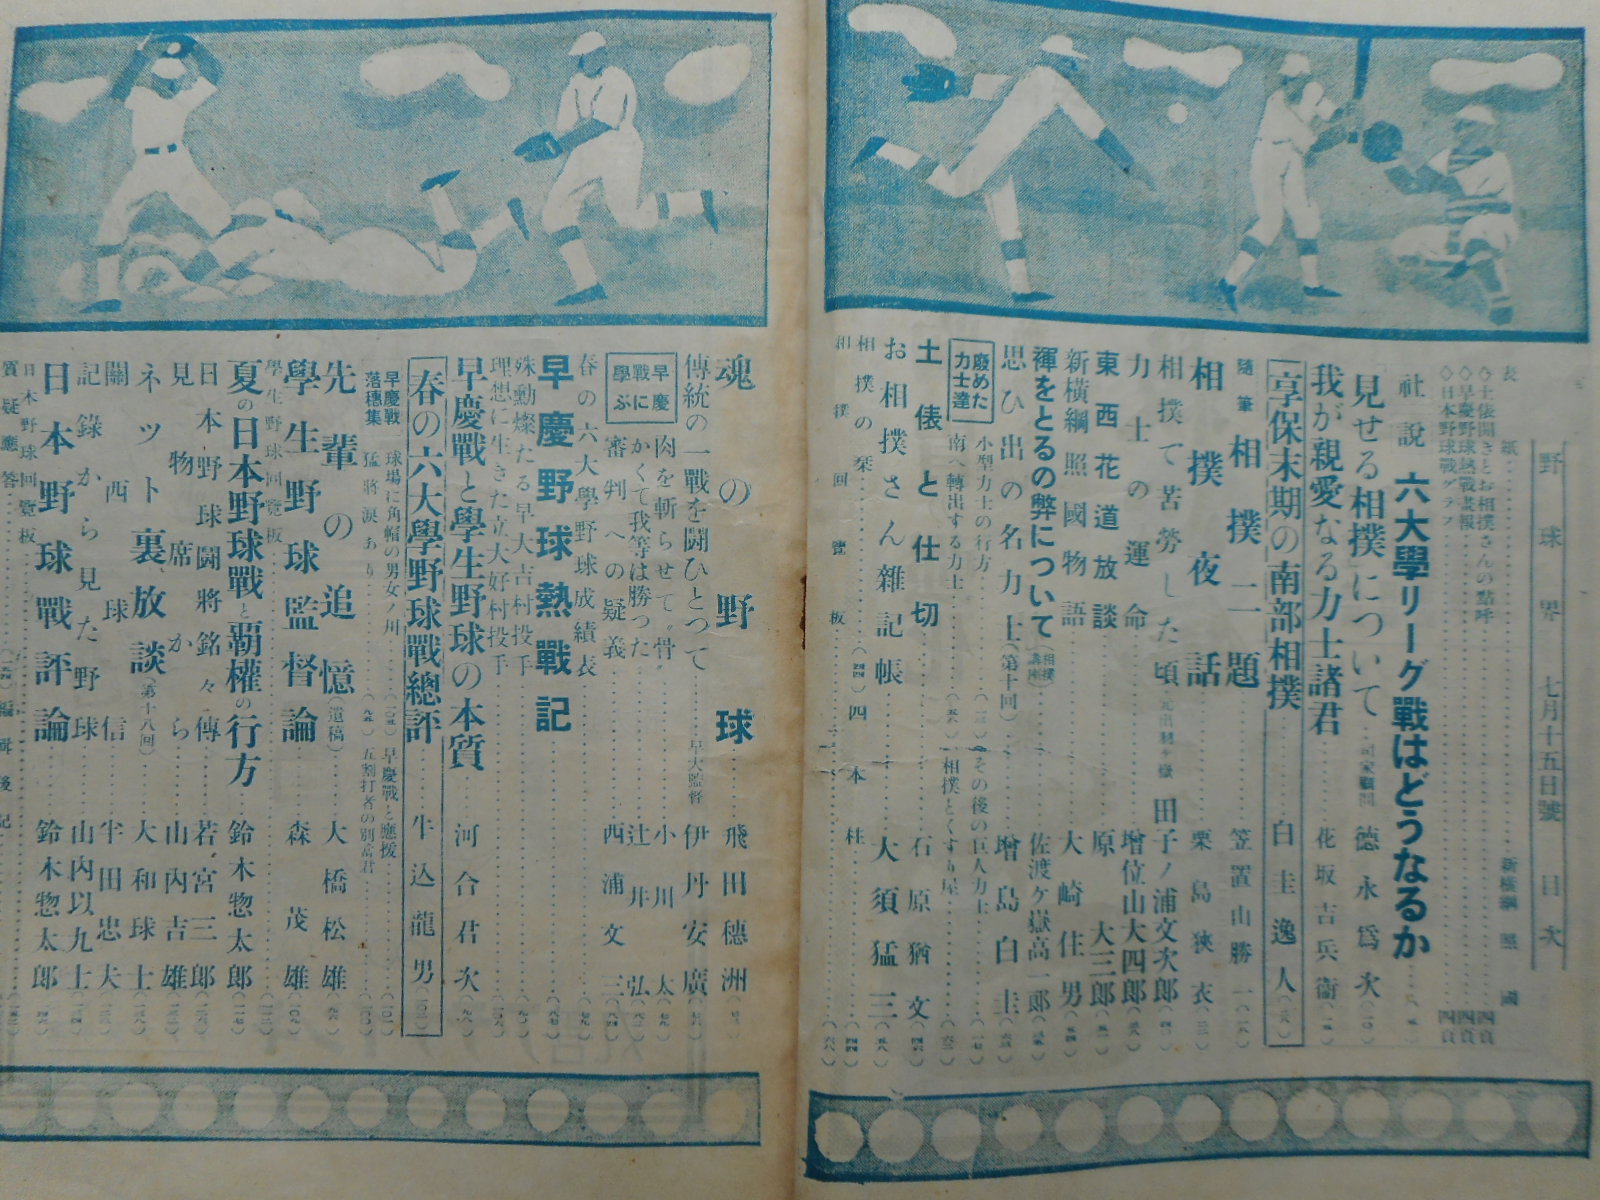 野球界 七月十五日號 目次
表紙 新橫綱 照國
◇土俵開きとお相撲さんの點呼 四頁
◇早慶野球熱戰畫報 四頁
◇日本野球戰グラフ 四頁
社說 六大學リーグ戰はどうなるか
「見せる相撲」について 德永爲次
我が親愛なる力士諸君 花坂吉兵衞
享保末期の南部相撲 白圭逸人
隨筆 相撲二題 笠置山勝一
相撲夜話 栗島狹衣
相撲で苦勞した頃 田子ノ浦文次郎
力士の運命 增位山大四郎
東西花道放談 原大三郎
新橫綱照國物語 大崎住男
褌をとるの弊について 佐渡ケ嶽高一郎
思ひ出の名力士(第十回) 增島白圭
廢めた力士達
小型力士の行方 その後の巨人力士
南へ轉出する力士 相撲とくすり屋
土俵と仕切 石原猶文
お相撲さん雜記帳 大須猛三
相撲の栞 四本柱
相撲回覽板
魂の野球 飛田穗洲
傳統の一戰を鬪ひとつて 早大監督 伊丹安廣
早慶戰に學ぶ
肉を斬らせて〝骨〟 小川太
かくて我等は勝つた 辻井弘
審判への疑義 西浦文三
春の六大學野球成績表
早慶野球熱戰記
殊勳燦たる早大吉村投手
理想に生きた立大好村投手
早慶戰と學生野球の本質 河合君次
春の六大學野球戰總評 牛込龍男
早慶戰落穗集
球場に角帽の男女ノ川 早慶戰と應援
猛將淚あり 五割打者の別當君
先輩の追憶(遺稿) 大橋松雄
學生野球監督論 森茂雄
學生野球回覽板
夏の日本野球戰と覇權の行方 鈴木惣太郎
日本野球鬪將銘々傳 若宮三郎
見物席から 山內吉雄
ネット裏放談(第十八回) 大和球士
關西球信 牢田忠夫
記錄から見た野球 山內以九士
日本野球戰評論 鈴木惣太郎
日本野球回覽板
質疑應答 編輯後記